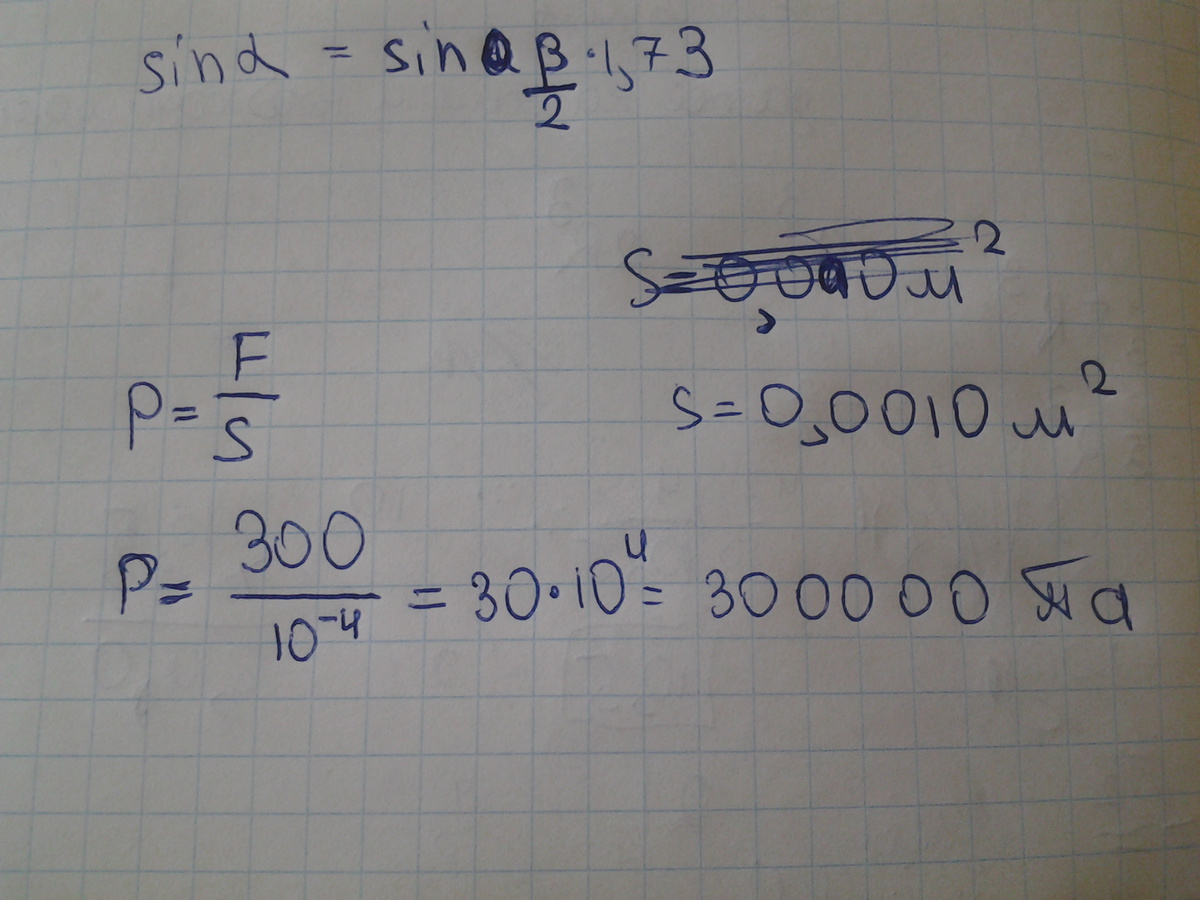 sinα = sin β/2 · 1,73
S = 0,0010 м²
P = F/S
S = 0,0010 м²
P = 300/10⁻⁴ = 30·10⁴ = 300000 Па